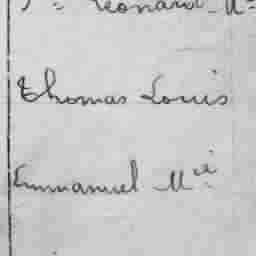 Léonard M
Thomas Louis
Emmanuel Mcé